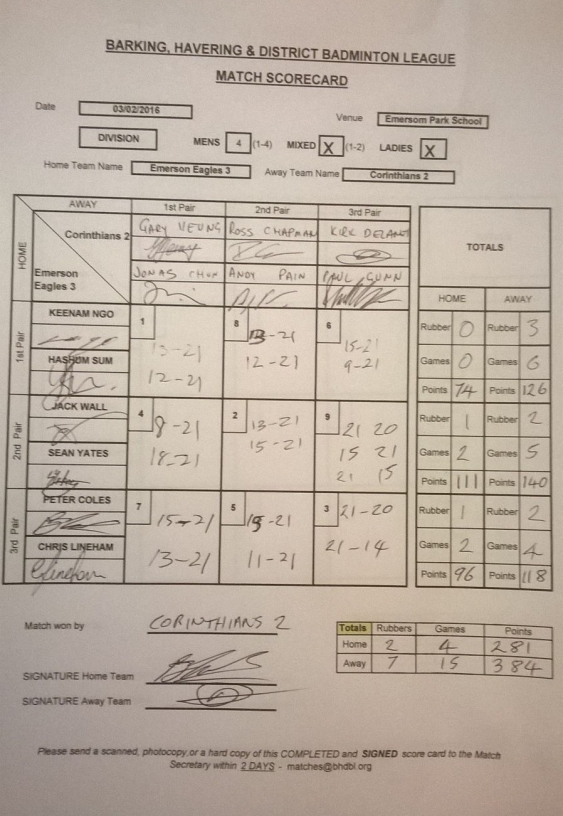 BARKING, HAVERING & DISTRICT BADMINTON LEAGUE
MATCH SCORECARD
Date 03/02/2016 Venue Emersom Park School
DIVISION MENS 4 (1-4) MIXED X (1-2) LADIES X
Home Team Name Emerson Eagles 3 Away Team Name Corinthians 2
AWAY 1st Pair 2nd Pair 3rd Pair
HOME Corinthians 2 GARY YEUNG ROSS CHAPMAN KIRK DELANEY TOTALS
Emerson Eagles 3 JONAS CHUN ANDY PAIN PAUL GUNN
HOME AWAY
1st Pair
KEENAM NGO 1 8 6 Rubber 0 Rubber 3
13-21 13-21 15-21
HASHUM SUM 12-21 12-21 9-21 Games 0 Games 6
Points 74 Points 126
2nd Pair
JACK WALL 4 2 9 Rubber 1 Rubber 2
8-21 13-21 21 20
SEAN YATES 18-21 15-21 15 21 Games 2 Games 5
21 15
Points 111 Points 140
3rd Pair
PETER COLES 7 5 3 Rubber 1 Rubber 2
15-21 15-21 21-20
CHRIS LINEHAM 13-21 11-21 21-14 Games 2 Games 4
Points 96 Points 118
Match won by CORINTHIANS 2
Totals Rubbers Games Points
Home 2 4 281
Away 7 15 384
SIGNATURE Home Team
SIGNATURE Away Team
Please send a scanned, photocopy,or a hard copy of this COMPLETED and SIGNED score card to the Match
Secretary within 2 DAYS - matches@bhdbl.org